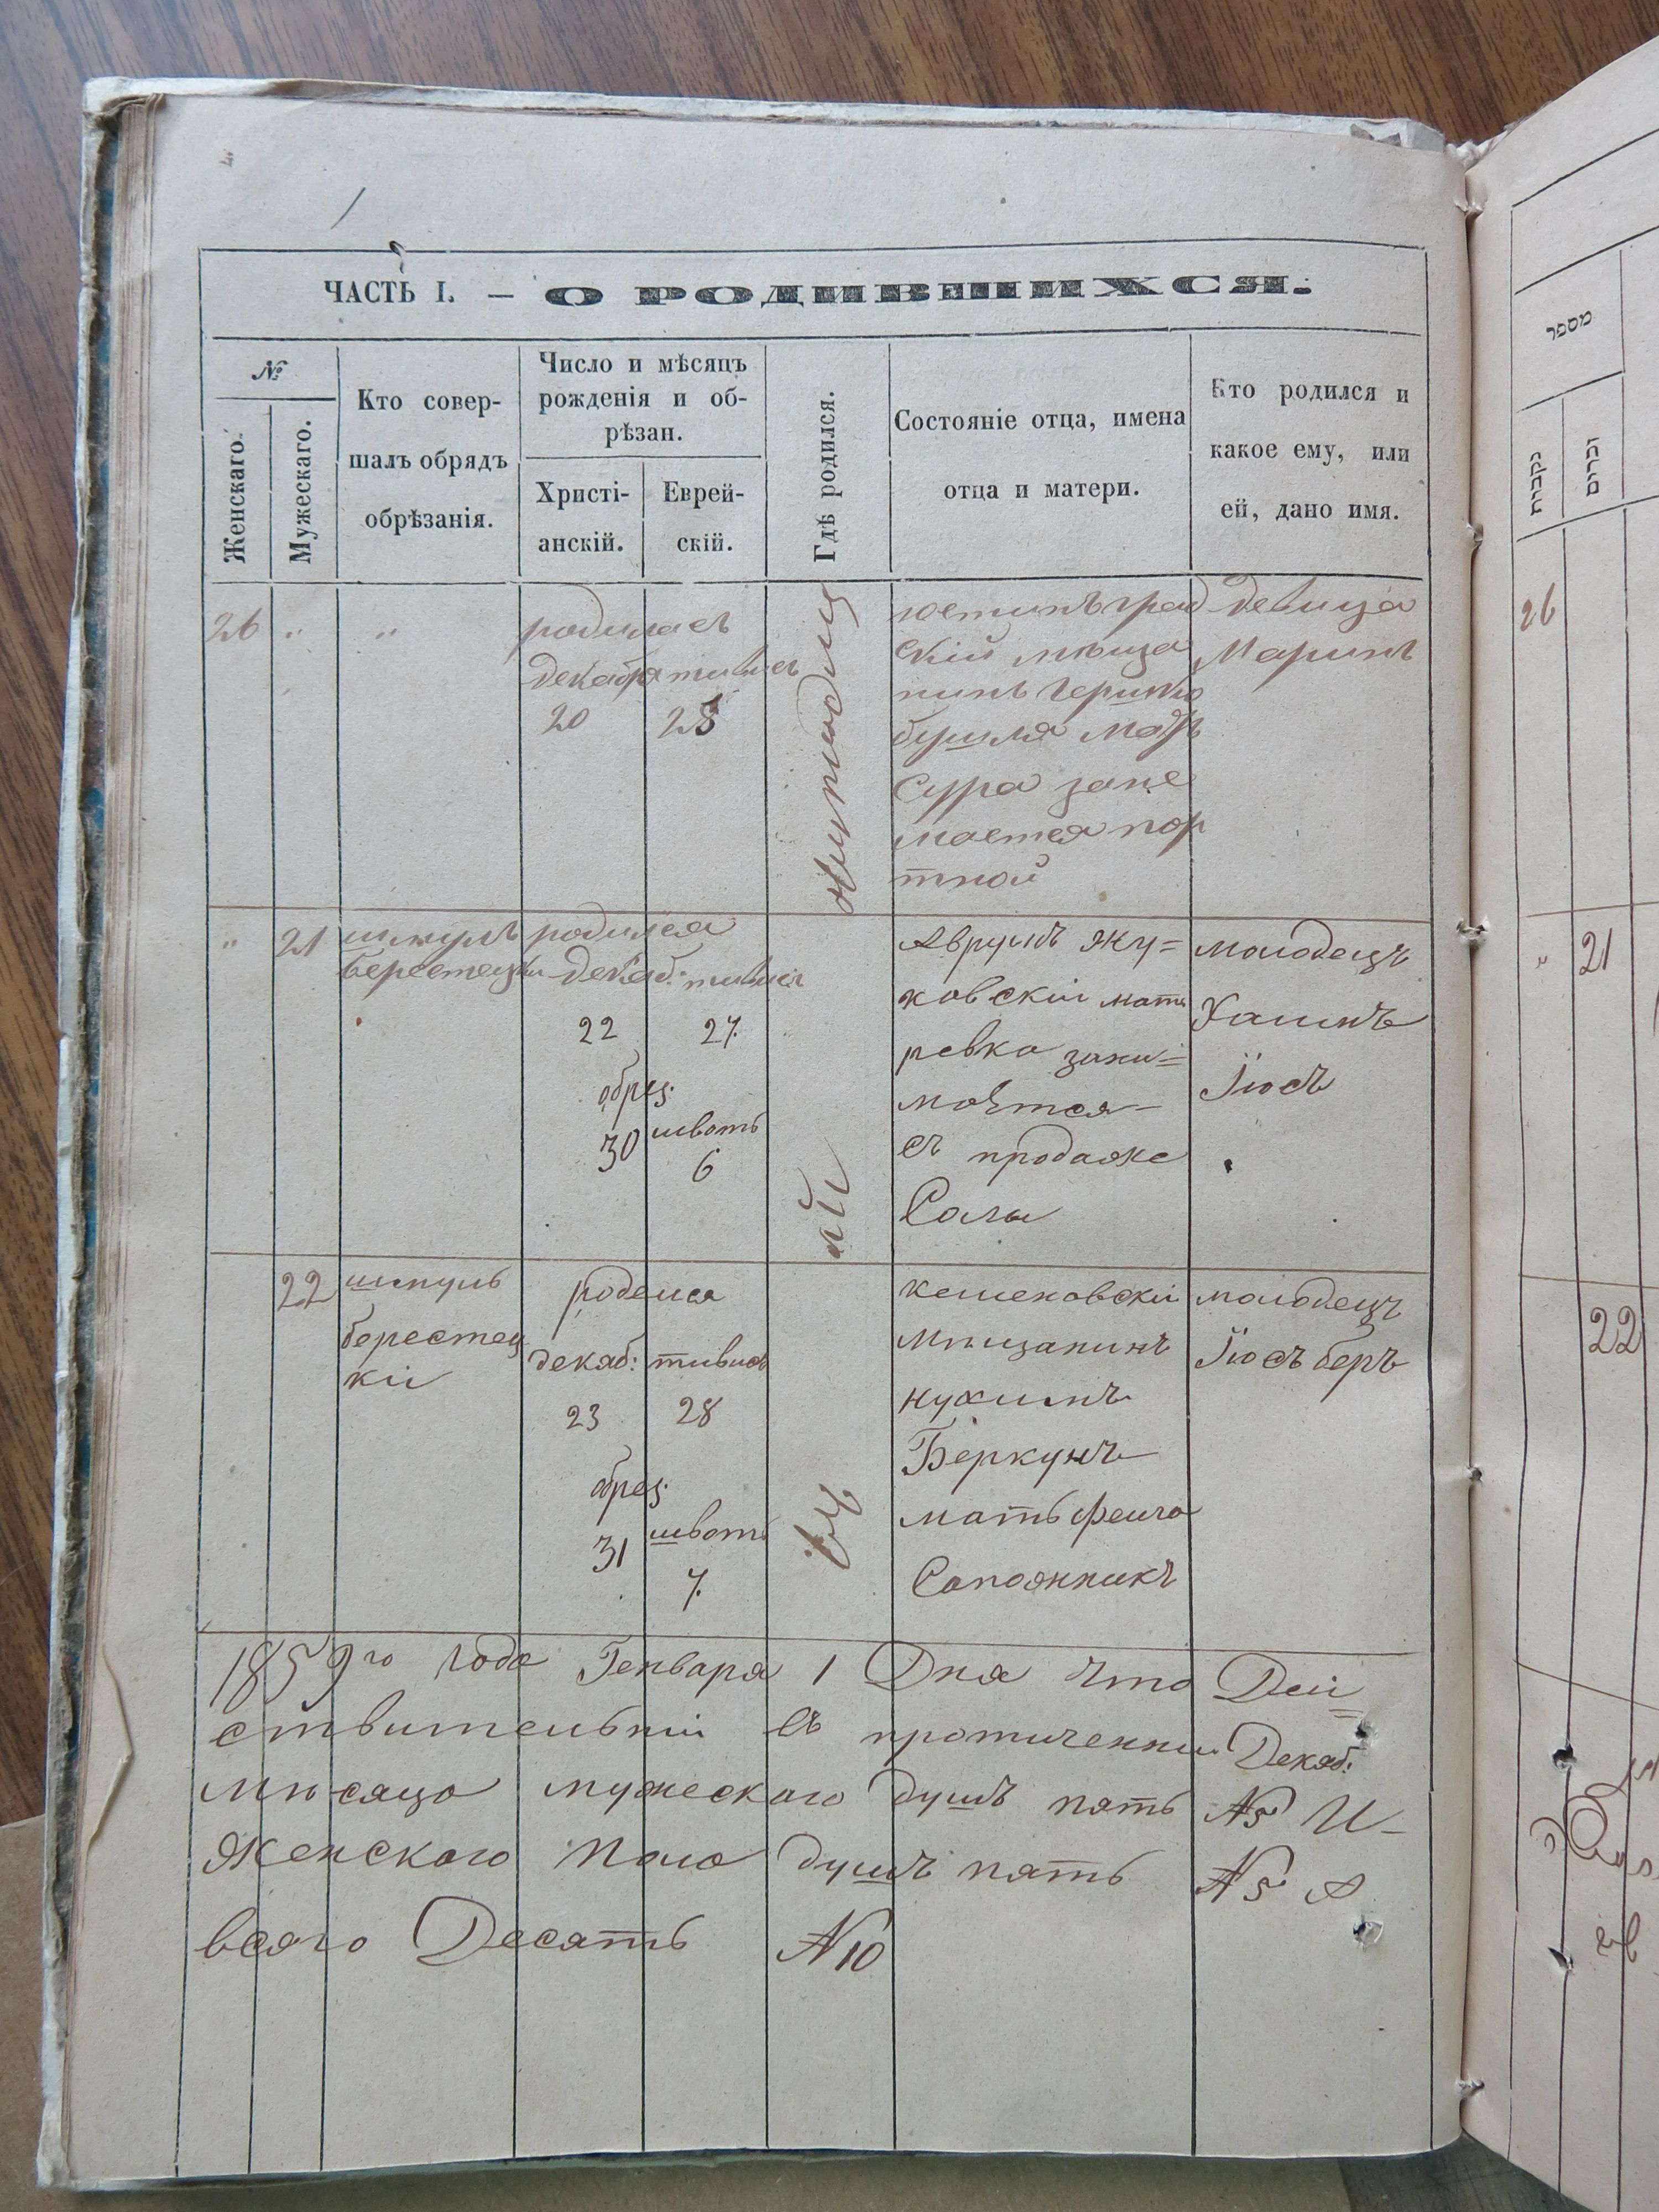 ЧАСТЬ I. — О РОДИВШИХСЯ.
№
Женскаго.
Мужескаго.
Кто совер-
шалъ обрядъ
обрѣзанія.
Число и мѣсяцъ
рожденія и об-
рѣзан.
Христі-
анскій.
Еврей-
скій.
Гдѣ родился.
Состояніе отца, имена
отца и матери.
Кто родился и
какое ему, или
ей, дано имя.
26 " "
родилась
декабря тивись
20 25
град
ский мѣща
нинъ Гершко
мать
Сура зане
мается пор
тной
девица
Маримъ
" 21
шмулъ
берестецки
родился
декаб: тивись
22 27.
обрез:
30 шватъ
6
Аврумъ Жу=
ковскій мать
ревка зани=
мается
съ продаже
Солы
молодецъ
Хаимъ
Іюсъ
22
шмулъ
берестец
кій
роделся
декаб: тивись
23 28
обрез:
31 шватъ
7.
кешеновскій
мѣщанинъ
нухимъ
Беркунъ
мать фейга
Сапожникъ
молодецъ
Іюсъ беръ
1859го года Генваря 1 Дня что Дей
ствительній въ протиченни Декаб:
мѣсяца мужескаго душъ пять №5 И
Женскаго Пола душъ пять №5 А
всяго Десять №10
מספר
נקבות
זכרים
26
" 21
22